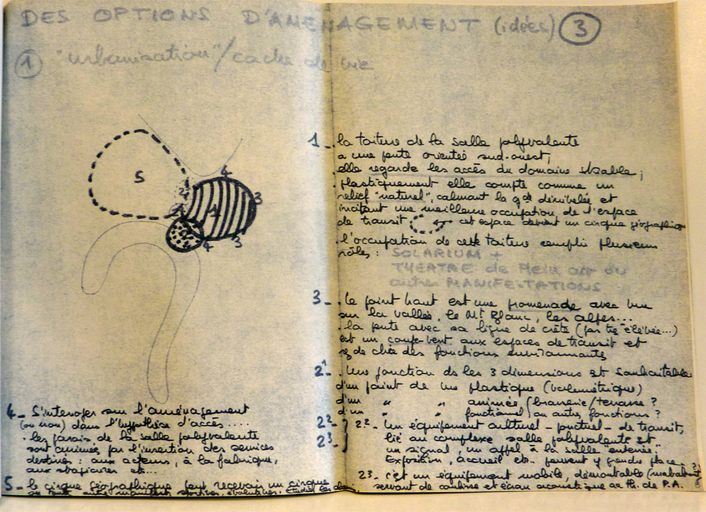 DES OPTIONS D'AMENAGEMENT (idées) 3
1 "urbanisation"/cadre de vie
5
1
2
3
4
3
4
1_ la toiture de la salle polyvalente
a une pente orientée sud-ouest,
elle regarde les accès du domaine skiable;
plastiquement elle compte comme un
relief "naturel", calmant la gde dénivelée et
incitant une meilleure occupation de l'espace
de transit cet espace devient un cirque géographique
. l'occupation de cette toiture remplit plusieurs
rôles: SOLARIUM +
THEATRE de Plein air ou
autres MANIFESTATIONS
3_ le point haut est une promenade avec vue
sur la vallée, le Mt Blanc, les alpes...
. la pente avec sa ligne de crête (pas très élevée...)
est un coupe vent aux espaces de transit et
rez de chée des fonctions environnantes
2¹_ Une jonction ds les 3 dimensions est souhaitable
d'un point de vue plastique (volumétrique)
d'un " " animée (branerie/terrasse?
d'un " " fonctionnel (ou autres fonctions?
2² 2²_ Un équipement culturel - ponctuel - de transit,
lié au complexe salle polyvalente et
un signal, un appel à la salle "enterrée"
exposition accueil etc. peuvent y prendre place
2³ 2³_ c'est un équipement mobile, démontable
servant de coulisse et écran acoustique au th. de P.A.
4_ S'interroger sur l'aménagement
(ou non) dans l'hypothèse d'accès....
. les parois de la salle polyvalente
sont animées par l'insertion des services
destinés: aux acteurs, à la fabrique,
aux etc...
5_ le cirque géographique peut recevoir un cirque